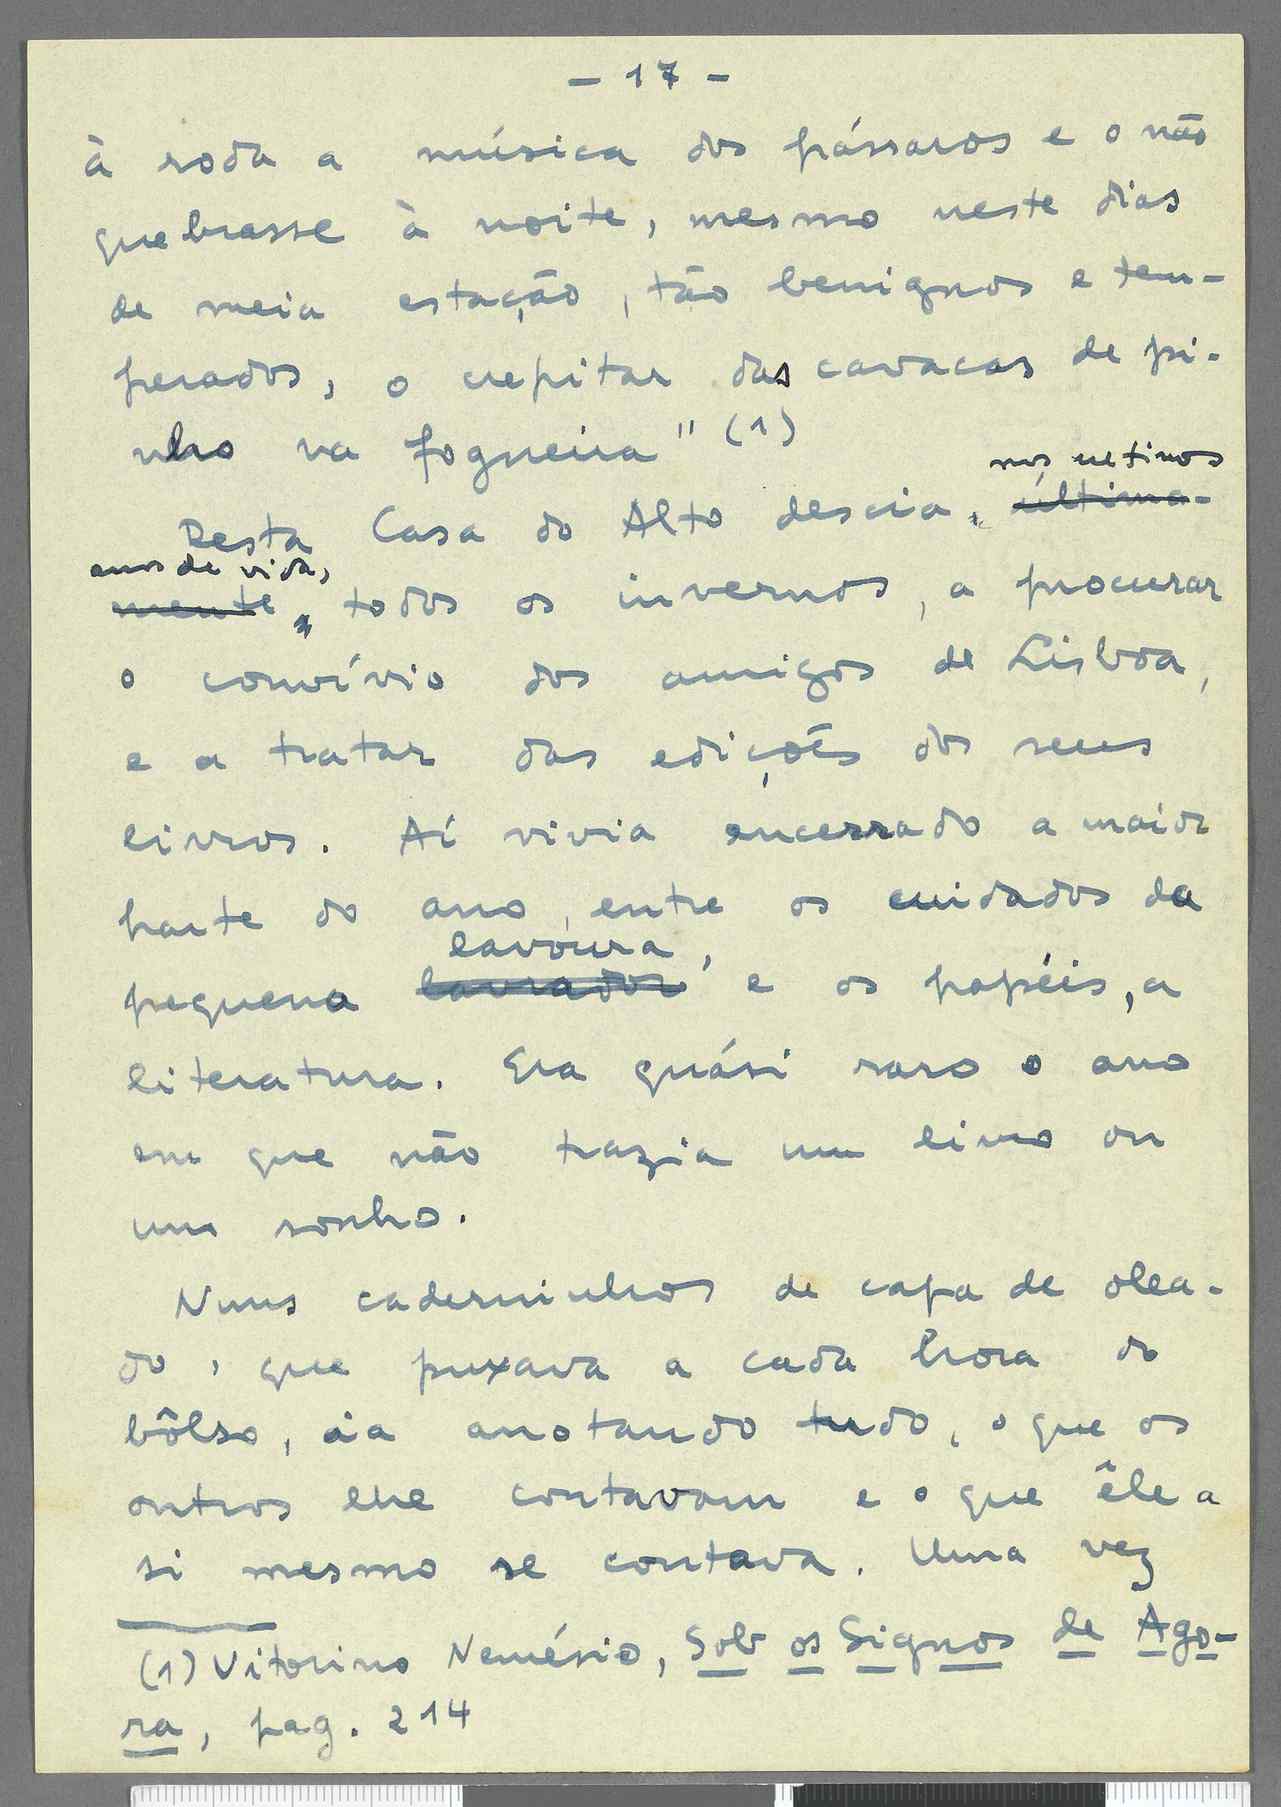 - 17 -
à roda a música dos pássaros e o não
quebrasse à noite, mesmo neste dias
de meia estação, tão benignos e tem-
perados, o crepitar das cavacas de pi-
nho na fogueira" (1)
nos ultimos
Desta Casa do Alto descia, última-
anos de vida,
mente, todos os invernos, a procurar
o convívio dos amigos de Lisboa,
e a tratar das edições dos seus
livros. Aí vivia encerrado a maior
parte do ano, entre os cuidados da
lavoura,
pequena lavrador e os papéis, a
literatura. Era quási raro o ano
em que não trazia um livro ou
um sonho.
Nuns caderninhos de capa de olea-
do, que puxava a cada hora do
bôlso, ia anotando tudo, o que os
outros lhe contavam e o que êle a
si mesmo se contava. Uma vez
(1) Vitorino Nemésio, Sob os Signos de Ago-
ra, pag. 214